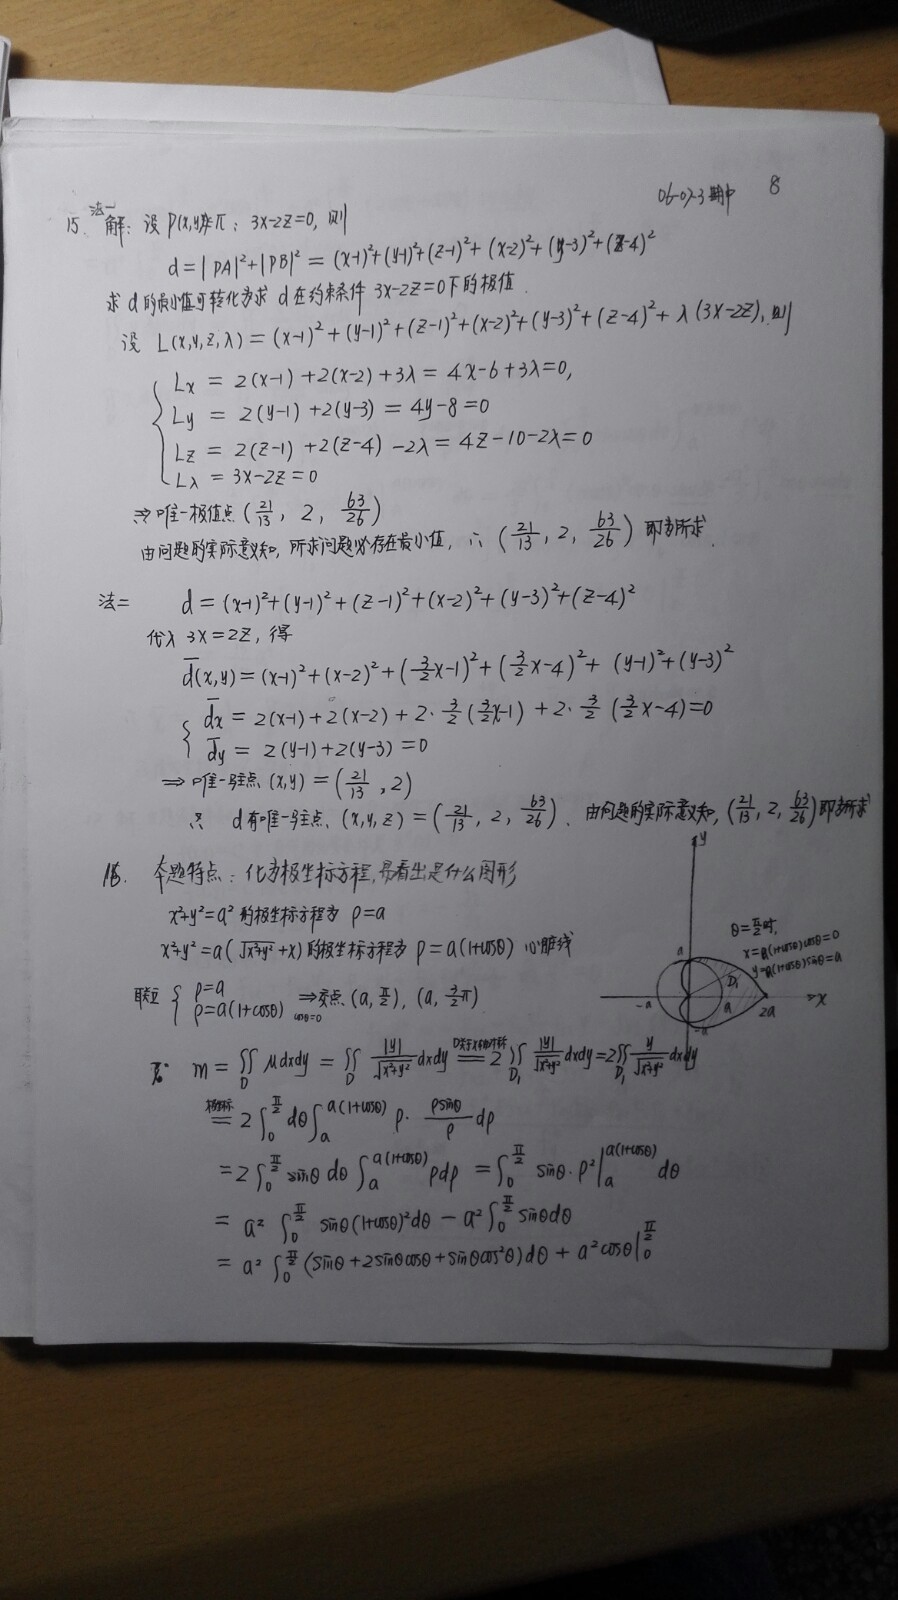 06-07-3期中 8
法一
15. 解: 设P(x,y,z)∈π: 3x-2z=0, 则
d=|PA|²+|PB|² = (x-1)²+(y-1)²+(z-1)²+(x-2)²+(y-3)²+(z-4)²
求d的最小值可转化为求d在约束条件 3x-2z=0下的极值.
设 L(x,y,z,λ) = (x-1)²+(y-1)²+(z-1)²+(x-2)²+(y-3)²+(z-4)²+λ(3x-2z), 则
Lx = 2(x-1)+2(x-2)+3λ = 4x-6+3λ=0,
Ly = 2(y-1)+2(y-3) = 4y-8=0
Lz = 2(z-1)+2(z-4)-2λ = 4z-10-2λ=0
Lλ = 3x-2z=0
⇒唯一极值点(21/13, 2, 63/26)
由问题的实际意义知, 所求问题必存在最小值, ∴ (21/13, 2, 63/26) 即为所求.
法二 d = (x-1)²+(y-1)²+(z-1)²+(x-2)²+(y-3)²+(z-4)²
代入 3x=2z, 得
d̄(x,y) = (x-1)²+(x-2)²+(3/2x-1)²+(3/2x-4)²+(y-1)²+(y-3)²
d̄x = 2(x-1)+2(x-2)+2·3/2(3/2x-1)+2·3/2(3/2x-4)=0
d̄y = 2(y-1)+2(y-3)=0
⇒唯一驻点(x,y)=(21/13, 2)
∴ d有唯一驻点(x,y,z)=(21/13, 2, 63/26). 由问题的实际意义知, (21/13, 2, 63/26)即为所求
16. 本题特点: 化为极坐标方程, 易看出是什么图形
x²+y²=a² 的极坐标方程为 ρ=a
x²+y²=a(√x²+y²+x)的极坐标方程为 ρ=a(1+cosθ) 心脏线
联立 { ρ=a
ρ=a(1+cosθ) cosθ=0 ⇒交点(a, π/2), (a, 3/2π)
y
θ=π/2时,
x=a(1+cosθ)cosθ=0
y=a(1+cosθ)sinθ=a
a
D₁
-a a 2a x
-a
m = ∬D μdxdy = ∬D |y|/√x²+y² dxdy D关于x轴对称= 2∬D₁ |y|/√x²+y² dxdy = 2∬D₁ y/√x²+y² dxdy
极坐标= 2∫₀^(π/2) dθ ∫ₐ^(a(1+cosθ)) ρ· ρsinθ/ρ dρ
= 2∫₀^(π/2) sinθ dθ ∫ₐ^(a(1+cosθ)) ρdρ = ∫₀^(π/2) sinθ·ρ²|ₐ^(a(1+cosθ)) dθ
= a² ∫₀^(π/2) sinθ(1+cosθ)²dθ - a²∫₀^(π/2) sinθdθ
= a² ∫₀^(π/2) (sinθ+2sinθcosθ+sinθcos²θ)dθ + a²cosθ|₀^(π/2)